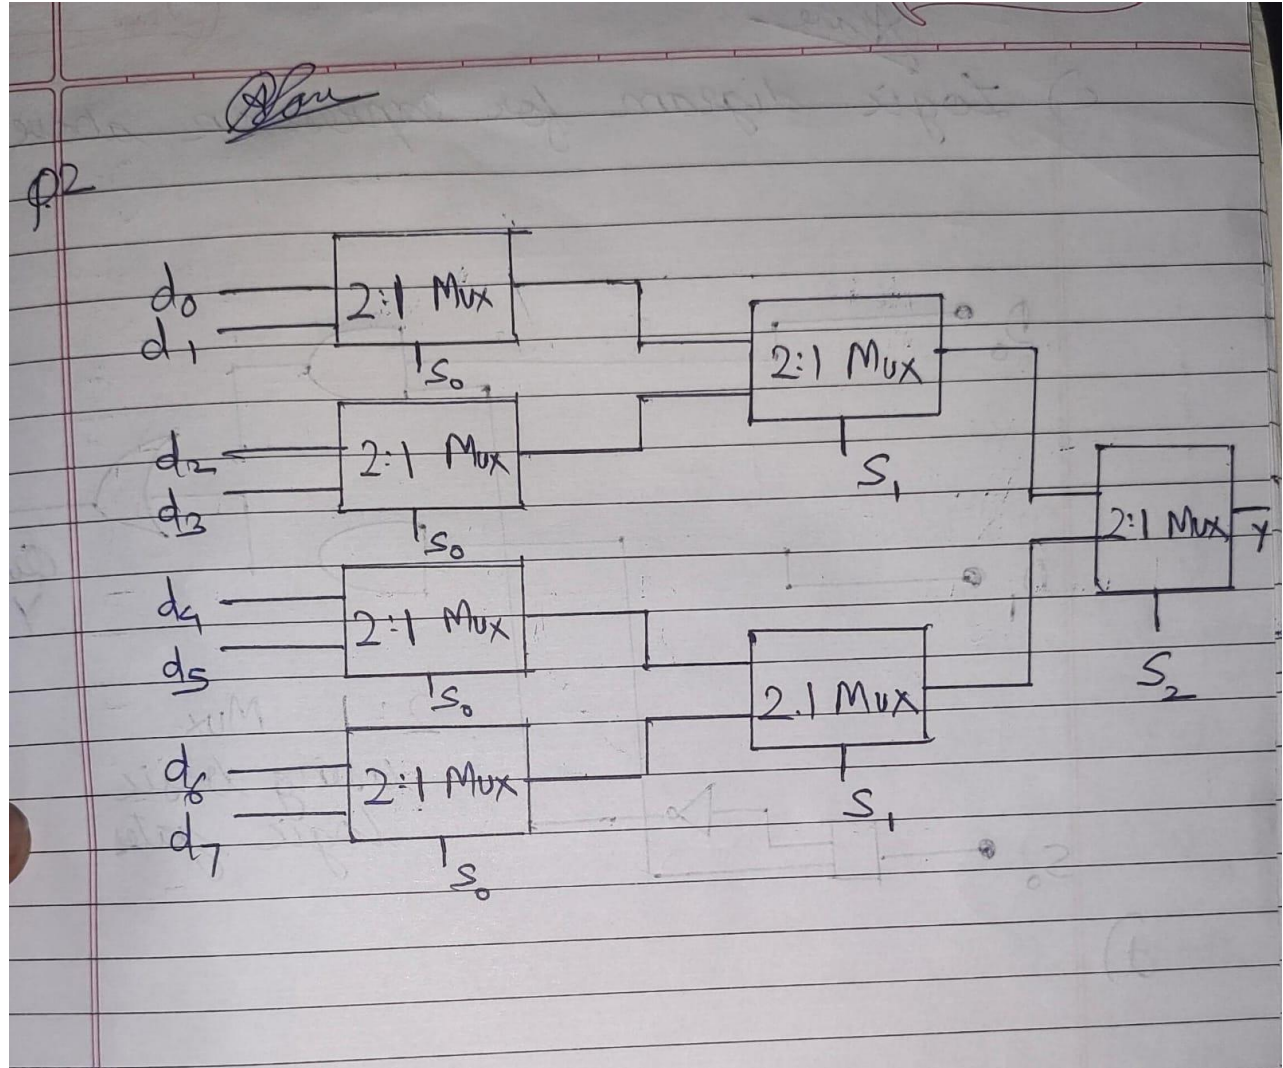 Q.2
d0
d1
2:1 Mux
S0
d2
d3
2:1 Mux
S0
d4
d5
2:1 Mux
S0
d6
d7
2:1 Mux
S0
2:1 Mux
S1
2.1 Mux
S1
2:1 Mux
S2
Y